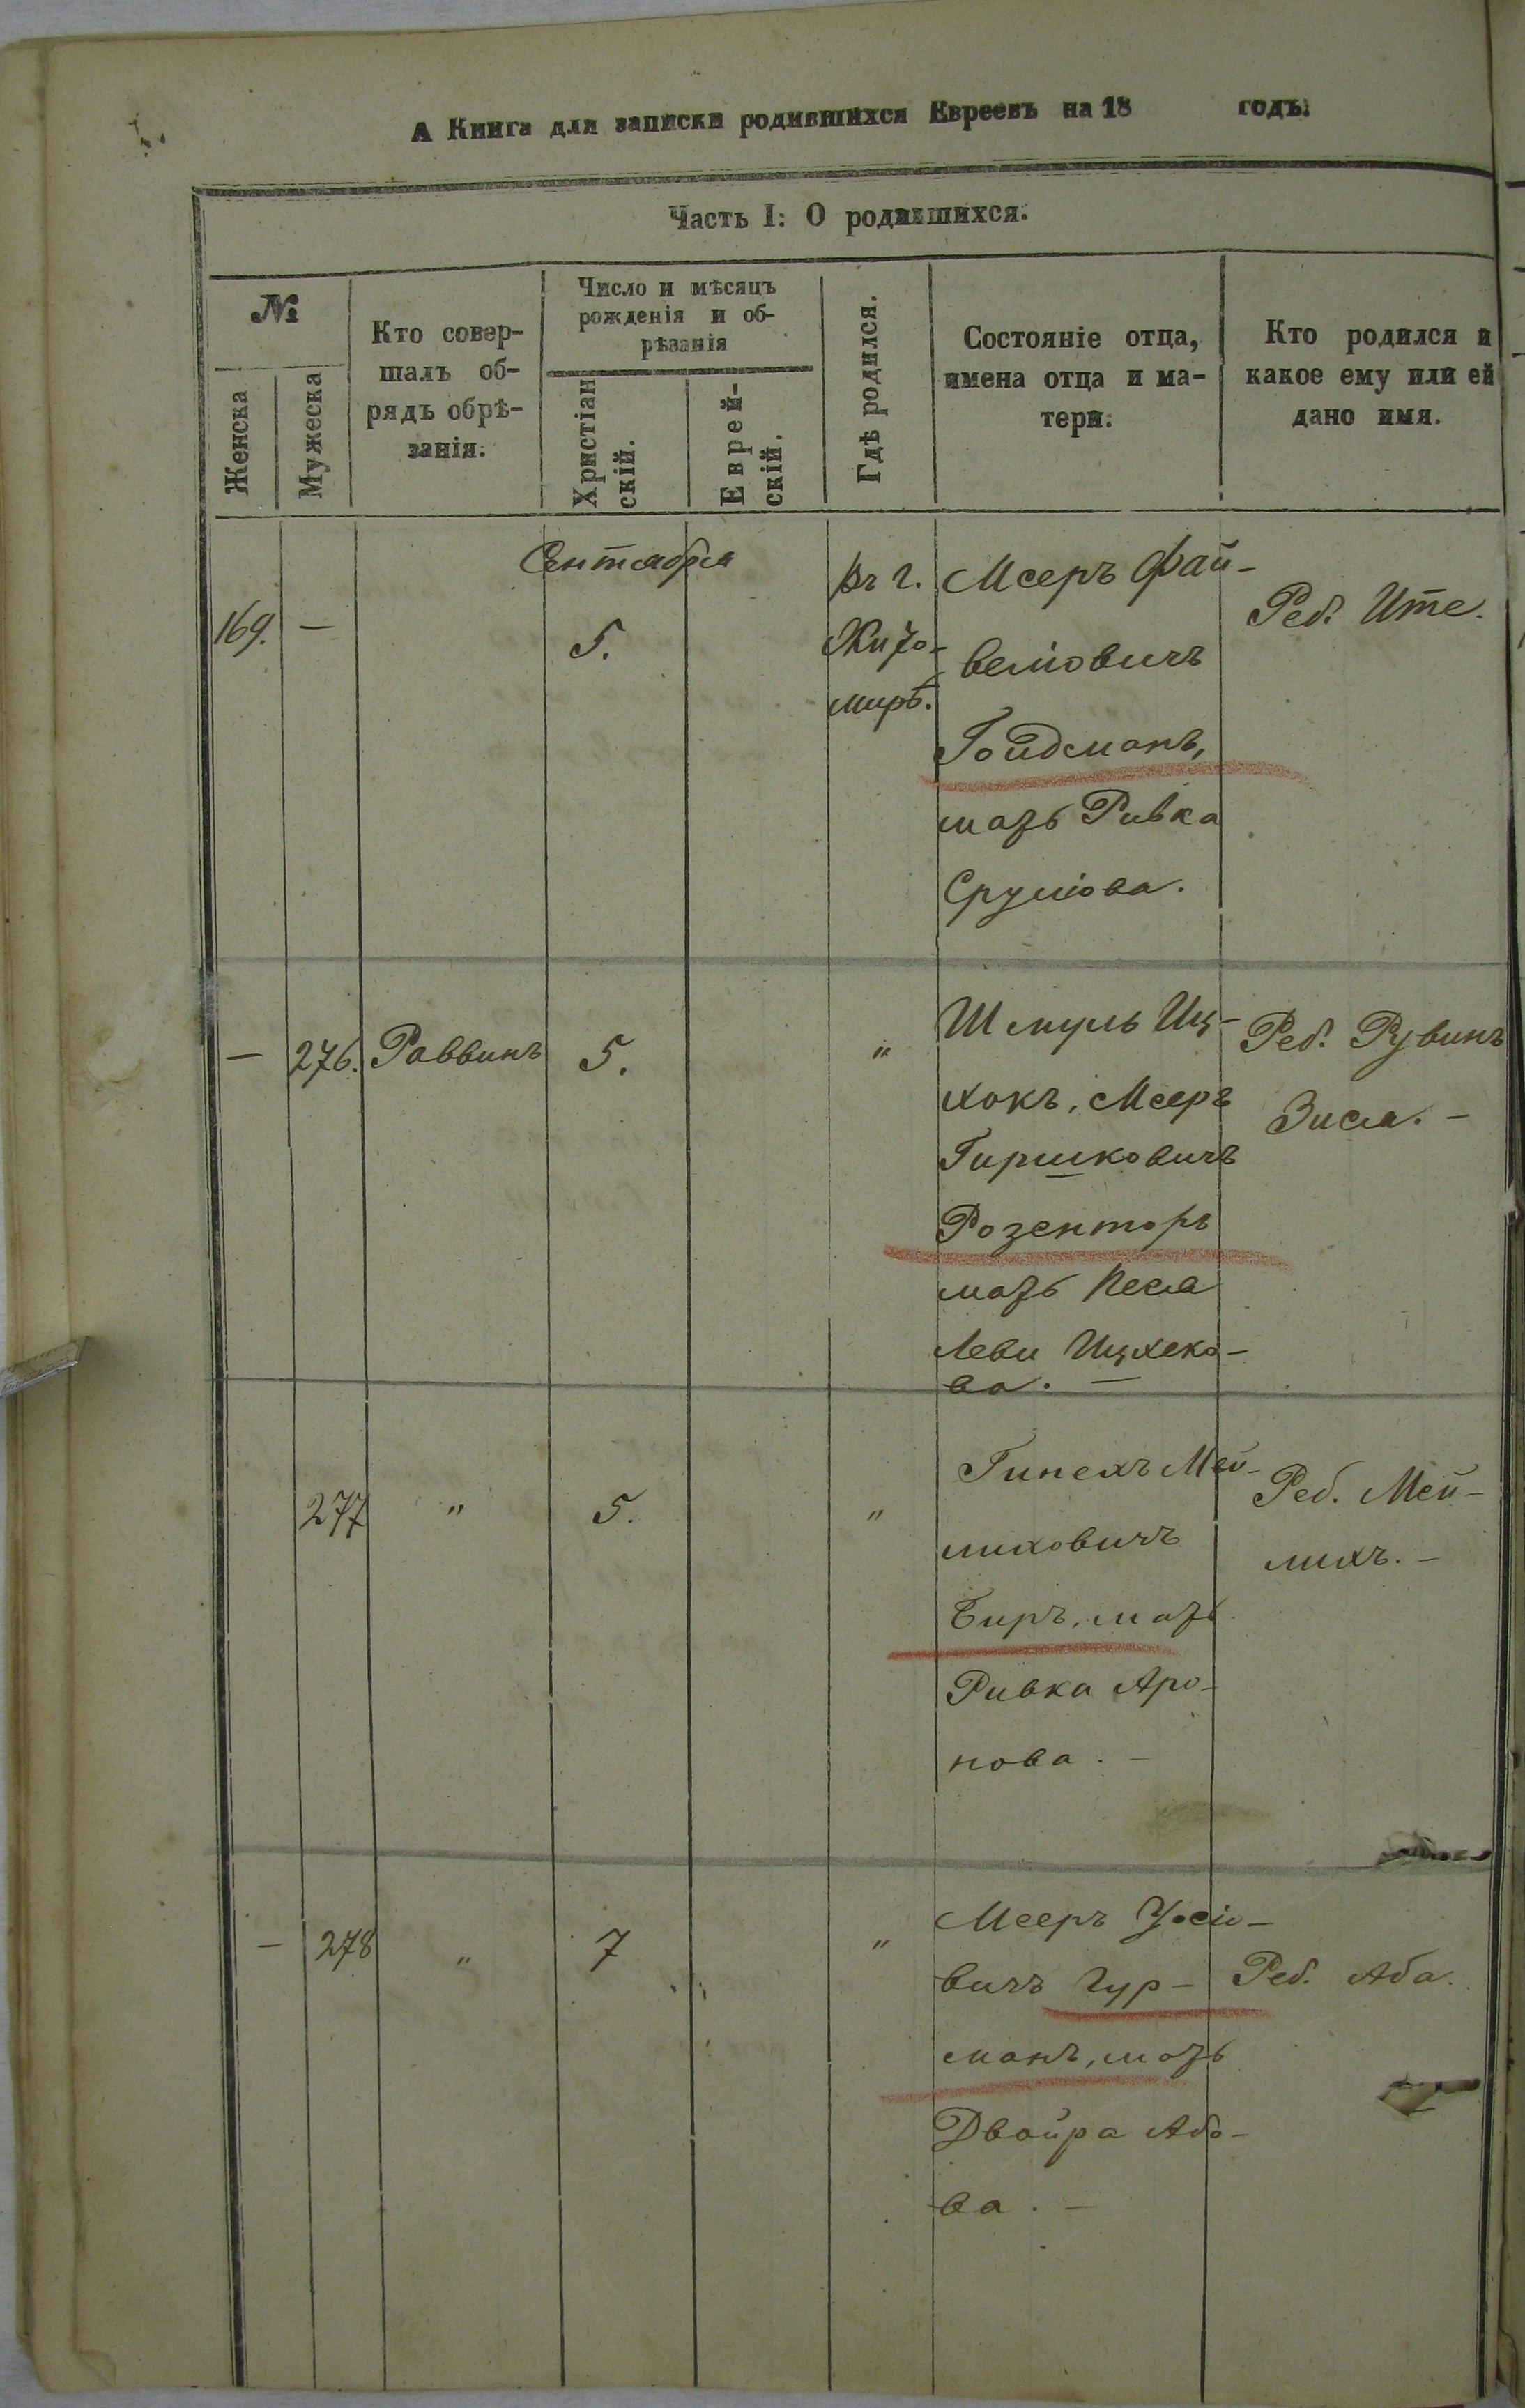 А Книга для записки родившихся Евреевъ на 18 годъ.
Часть I: О родившихся.
№
Женска
Мужеска
Кто совер-
шалъ об-
рядъ обрѣ-
занія.
Число и мѣсяцъ
рожденія и об-
рѣзанія
Христіан
скій.
Еврей-
скій.
Гдѣ родился.
Состояніе отца,
имена отца и ма-
тери.
Кто родился и
какое ему или ей
дано имя.
Сентября
169.
—
5.
Въ г.
Жито-
мирѣ.
Мееръ Фай-
веліовичъ
Гойдманъ,
мать Ривка
Сруліова.
Реб. Ите.
—
276.
Раввинъ
5.
"
Шмуль Иц-
хокъ, Мееръ
Гиршковичъ
Розенторъ
мать Песя
Леви Ицхеко-
ва. —
Реб. Рувинъ
Зися. —
277
"
5.
"
Гинехъ Мей-
лиховичъ
Биръ, мать
Ривка Аро-
нова. —
Реб. Мей-
лихъ. —
—
278
"
7
"
Мееръ Уосіо-
вичъ Гур-
манъ, мать
Двойра Або-
ва. —
Реб. Аба.